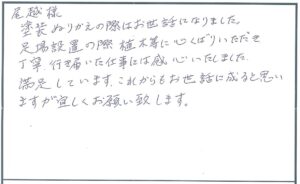 尾越様
塗装ぬりかえの際はお世話になりました
足場設置の際植木等に心くばりいただき
丁寧、行き届いた仕事には感心いたしました。
満足しています。これからもお世話に成ると思い
ますが宜しくお願い致します。